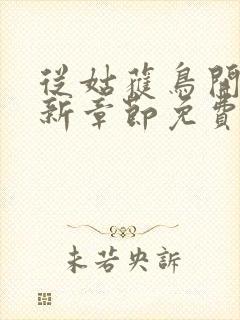 從姑蒦鳥開
新章節免費
未若央訴